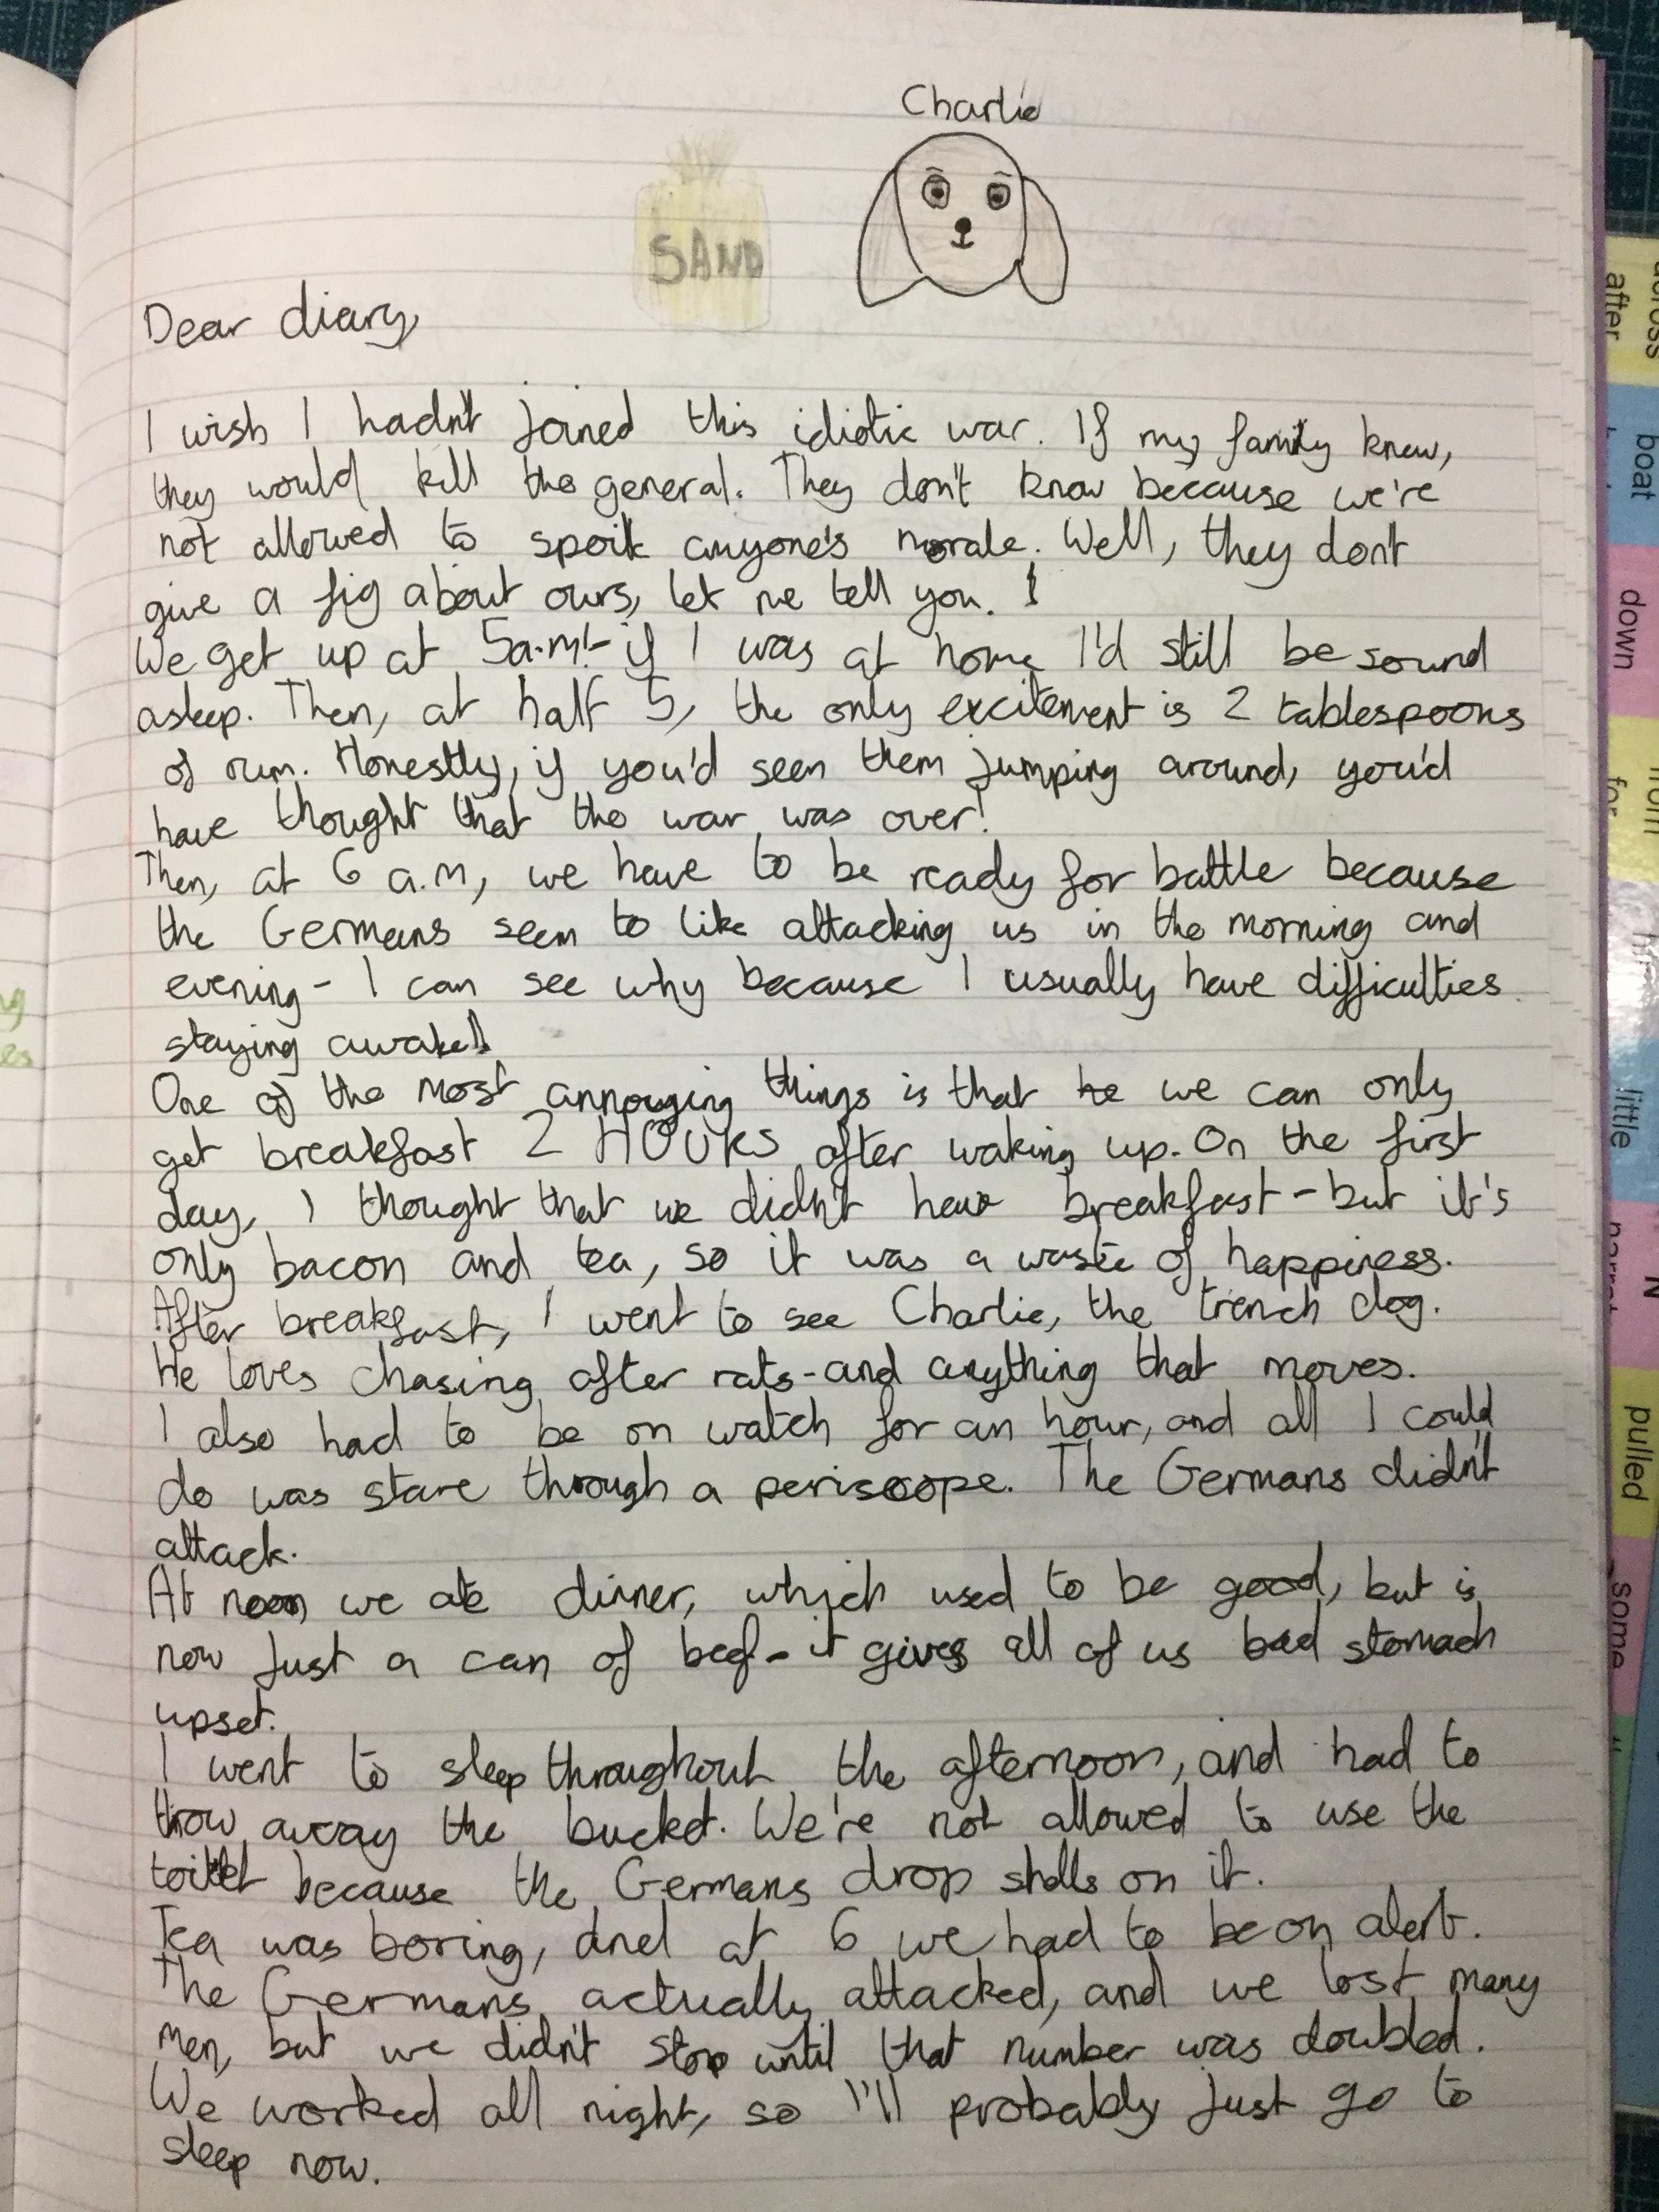 Charlie
SAND
Dear diary,
I wish I hadn't joined this idiotic war. If my family knew,
they would kill the general. They don't know because we're
not allowed to spoil anyone's morale. Well, they don't
give a fig about ours, let me tell you. !
We get up at 5a.m!- if I was at home I'd still be sound
asleep. Then, at half 5, the only excitement is 2 tablespoons
of rum. Honestly, if you'd seen them jumping around, you'd
have thought that the war was over!
Then, at 6 a.m, we have to be ready for battle because
the Germans seem to like attacking us in the morning and
evening - I can see why because I usually have difficulties
staying awake!
One of the most annoying things is that he we can only
get breakfast 2 HOURS after waking up. On the first
day, I thought that we didn't have breakfast - but it's
only bacon and tea, so it was a waste of happiness.
After breakfast, I went to see Charlie, the trench dog.
He loves chasing after rats - and anything that moves.
I also had to be on watch for an hour, and all I could
do was stare through a periscope. The Germans didn't
attack.
At noon we ate dinner, which used to be good, but is
now just a can of beef - it gives all of us bad stomach
upset.
I went to sleep throughout the afternoon, and had to
throw away the bucket. We're not allowed to use the
toilet because the Germans drop shells on it.
Tea was boring, and at 6 we had to be on alert.
The Germans actually attacked, and we lost many
men, but we didn't stop until that number was doubled.
We worked all night, so I'll probably just go to
sleep now.
after
boat
down
from
for
little
N
pulled
some